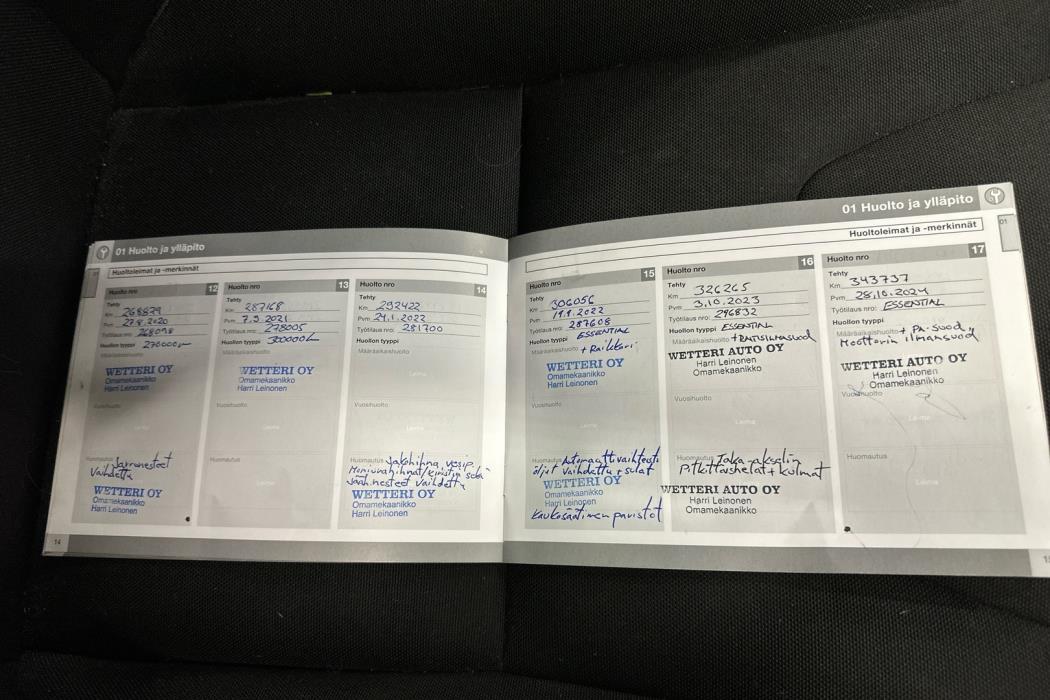 01 Huolto ja ylläpito
Huoltoleimat ja -merkinnät
Huolto nro 12
Tehty
Km 268879
Pvm 27.8.2020
Työtilaus nro: 268098
Huollon tyyppi 270000
Määräaikaishuolto
WETTERI OY
Omamekaanikko
Harri Leinonen
Vuosihuolto
Huomautus Jarrunesteet
Vaihdettu
WETTERI OY
Omamekaanikko
Harri Leinonen
14
Huolto nro 13
Tehty
Km 287168
Pvm 7.9.2021
Työtilaus nro: 278005
Huollon tyyppi 300000
Määräaikaishuolto
WETTERI OY
Omamekaanikko
Harri Leinonen
Vuosihuolto
Leima
Huomautus
Leima
Huolto nro 14
Tehty
Km 292422
Pvm 24.1.2022
Työtilaus nro: 281700
Huollon tyyppi
Määräaikaishuolto
Leima
Vuosihuolto
Leima
Huomautus Jakohihna, vesip.
Moniurahihnat/kiristin sekä
Jarr.nesteet vaihdettu
WETTERI OY
Omamekaanikko
Harri Leinonen
01 Huolto ja ylläpito
Huoltoleimat ja -merkinnät
01
Huolto nro 15
Tehty
Km 306056
Pvm 19.9.2022
Työtilaus nro: 287608
Huollon tyyppi ESSENTIAL
Määräaikaishuolto + Raitisi
WETTERI OY
Omamekaanikko
Harri Leinonen
Vuosihuolto
Leima
Huomautus Automaattivaihteisto
öljyt vaihdettu + sulat
WETTERI OY
Omamekaanikko
Harri Leinonen
Kaukosäätimen paristot
Huolto nro 16
Tehty
Km 326265
Pvm 3.10.2023
Työtilaus nro: 296832
Huollon tyyppi ESSENTIAL
Määräaikaishuolto + RAITISILMASUOD
WETTERI AUTO OY
Harri Leinonen
Omamekaanikko
Vuosihuolto
Leima
Huomautus Taka-akselin
Pitkittäishelat + kulmat
WETTERI AUTO OY
Harri Leinonen
Omamekaanikko
Huolto nro 17
Tehty
Km 343737
Pvm 28.10.2024
Työtilaus nro: ESSENTIAL
Huollon tyyppi
Määräaikaishuolto + PA-suod ja
Moottorin ilmansuod
WETTERI AUTO OY
Harri Leinonen
Omamekaanikko
Vuosihuolto
Leima
Huomautus
Leima